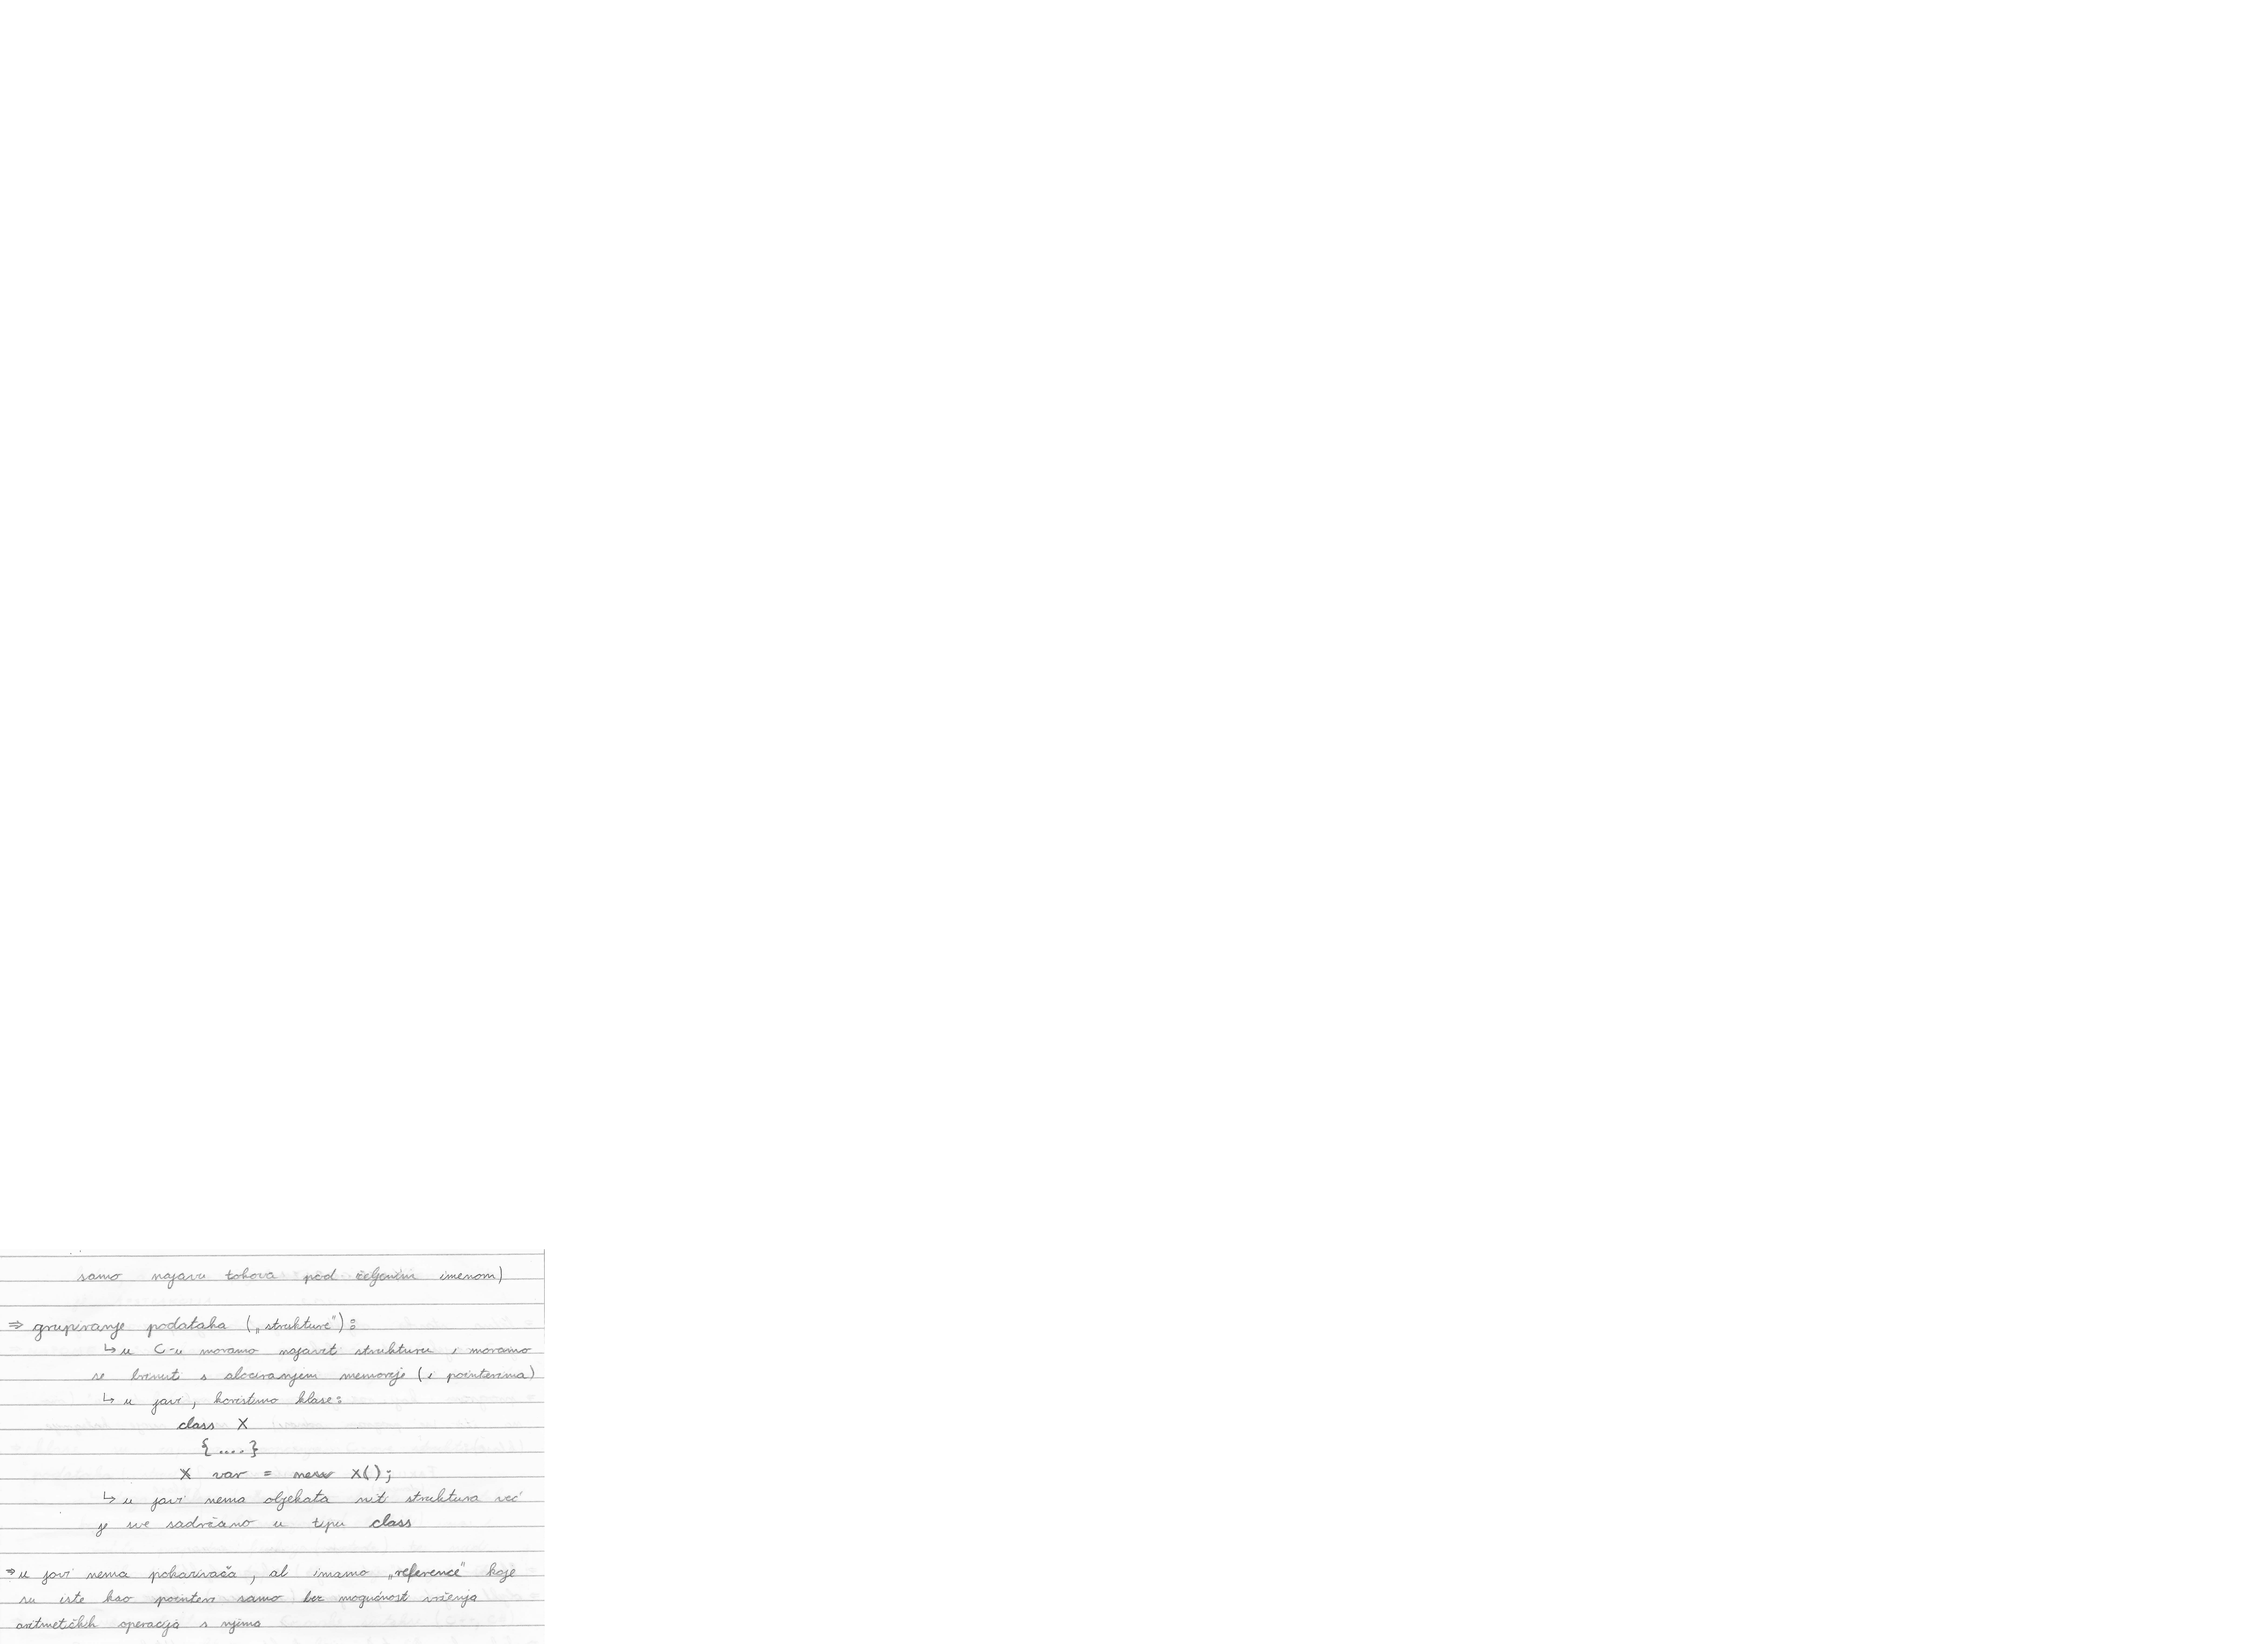 samo najavu tokova pod željenim imenom)
⇒ grupiranje podataka („strukture"):
↳ u C-u moramo najavit strukturu i moramo
se brinuti s alociranjem memorije (i pointerima)
↳ u javi, koristimo klase:
class X
{....}
X var = new X();
↳ u javi nema objekata niti struktura već
je sve sadržano u tipu class
⇒ u javi nema pokazivača, al imamo „reference" koje
su iste kao pointeri samo bez mogućnost vršenja
aritmetičkih operacija s njima